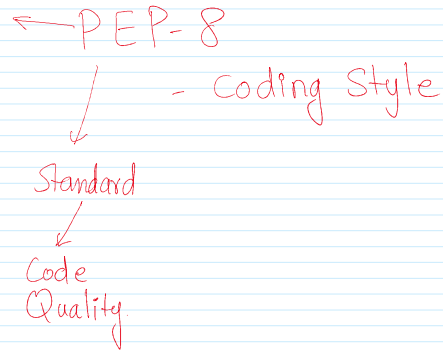 PEP-8
- Coding Style
Standard
Code
Quality.